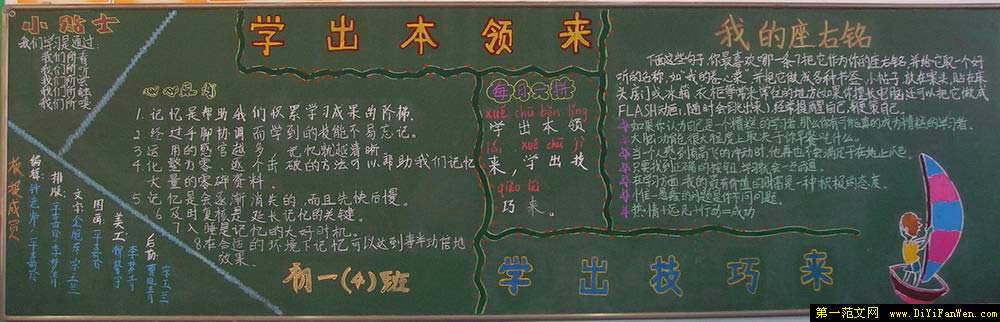 小贴士
我们学习是通过:
我们所看
我们所听
我们所
我们所
我们所触
我们所
学出本领来
1.记忆是帮助我们积累学习成果的阶梯.
2.经过手脚协调而学到的技能不易忘记。
3.运用的感官越多,记忆就越清晰
4.化整为零、逐个击破的方法可以帮助我们记忆
大量的零碎资料.
5.记忆是会逐渐消失的,而且先快后慢.
6.及时复核是延长记忆的关键。
7.入睡是记忆的大好时机。
8.在合适的环境下记忆可以达到事半功倍地
效果。
初一(4)班
每日一拼
xué chū běn lǐng
学出本领
lái xué chū jì
来,学出技
qiǎo lái
巧来。
我的座右铭
下面这些句子,你最喜欢哪一条?把它作为你的座右铭,并给它取一个好
听的名称,如"我的卷心菜",并把它做成各种书签、小帖子,放在案头,贴在床
头、房门或冰箱、衣柜等常来常往的地方(如果你擅长电脑,还可以把它做成
FLASH动画,随时会跳出来)经常提醒自己,鞭策自己.
如果你认为自己是一个糟糕的学习者,那么你有可能真的成为糟糕的学习者.
大脑功能很大程度上取决于你早餐吃什么.
当一个人感到有高飞的冲动时,他再也不会满足于在地上爬.
只要找到正确的按钮,学习就会一触而通.
在学习方面,我的最有价值的财富是一种积极的态度.
惟一愚蠢的问题是你不问问题.
热情+远见+行动=成功
学出技巧来
板报成员
编辑:
排版:
文字:
图画:
美工:
后勤:
第一范文网 www.DiYiFanWen.com